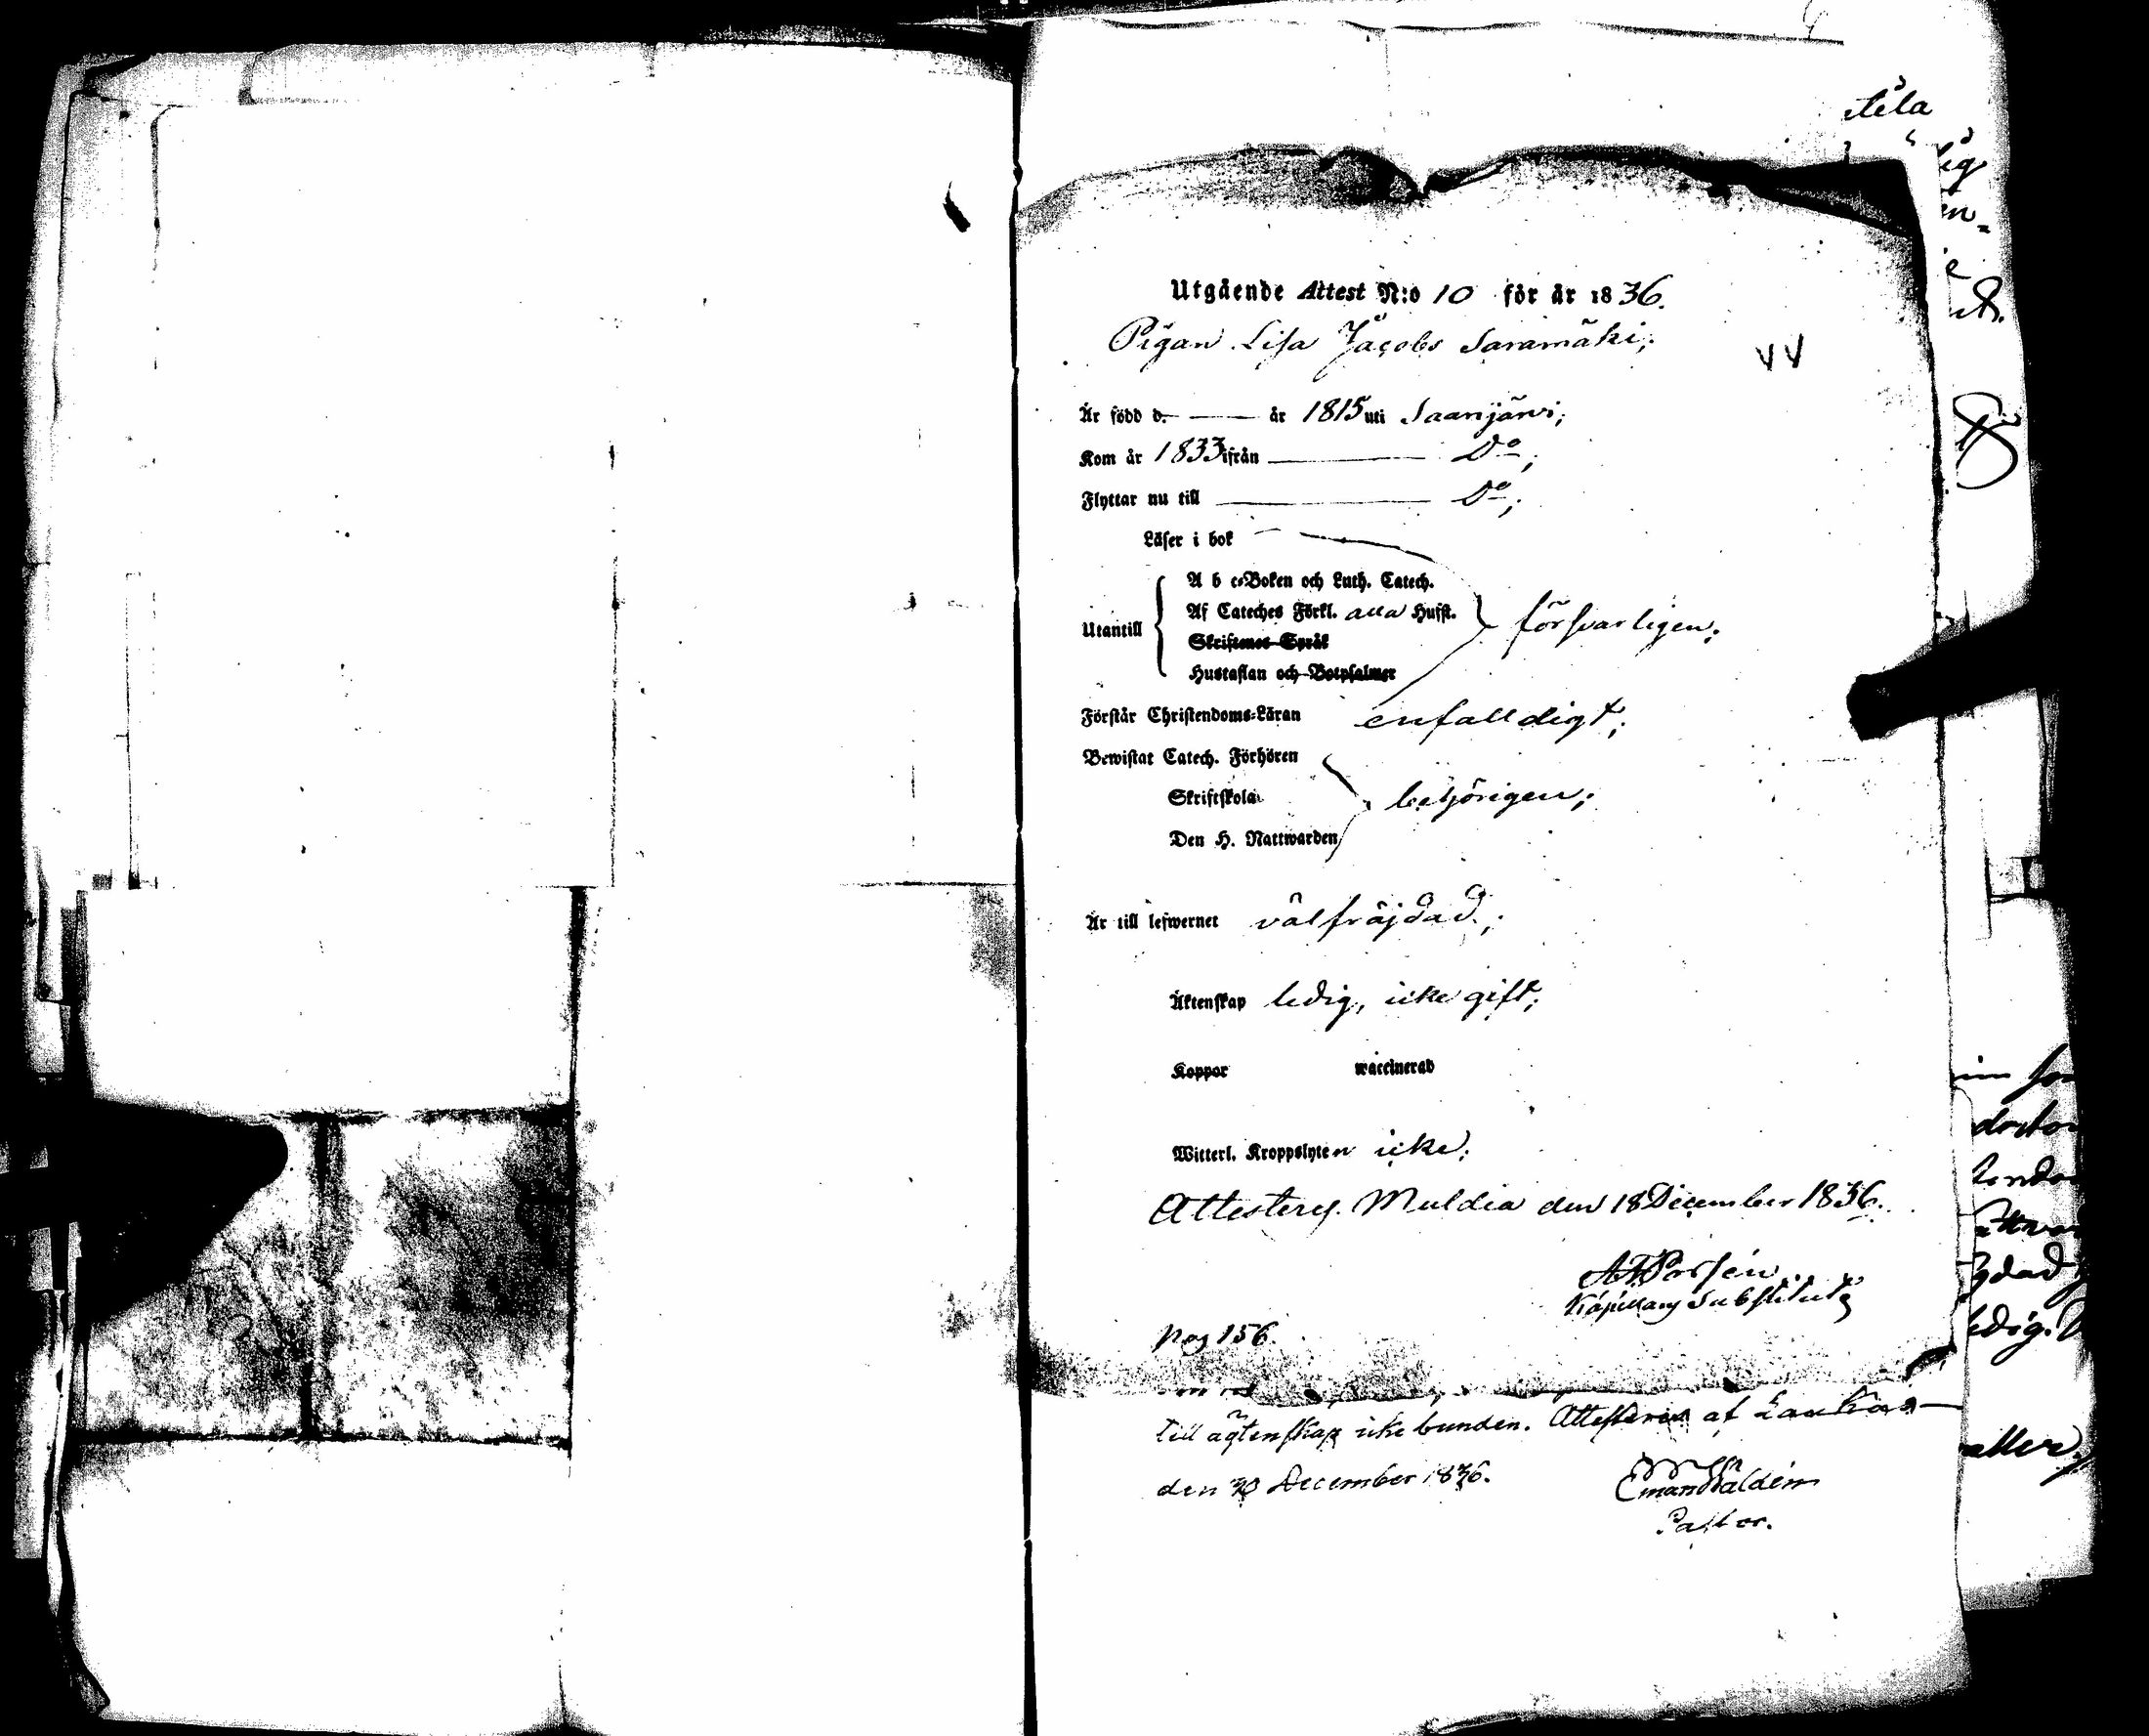 Utgående Attest N:o 10 för år 1836.
Pigan Lisa Jacobs Saramäki;
Är född d. — år 1815 uti Saarijärvi;
Kom år 1833 ifrån — Do;
Flyttar nu till — Do;
Läser i bok
A b c-Boken och Luth. Catech.
Af Cateches Förkl. alla Hufst.
Utantill försvarligen;
Skriftenes Språk
Hustaflan och Botpsalmer
Förstår Christendoms-Läran enfalldigt;
Bewistat Catech. Förhören
Skriftskola behörigen;
Den H. Nattwarden
Är till lefwernet välfräjdad;
Äktenskap ledig, icke gift;
Koppor waccinerad
Witterl. Kroppslyten icke;
Attesterr. Muldia den 18 December 1836.
Porsén
Kapellans Substitut
pag 156.
till ägtenskap icke bunden. Attesteras af Laukas
den 30 December 1836.
Eman Waldén
Pastor.